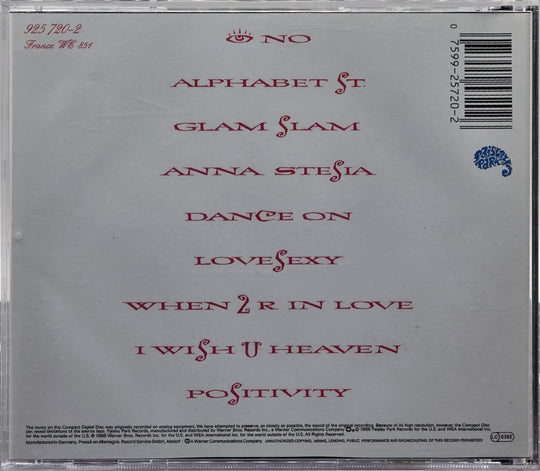 925 720-2
France WE 851
NO
ALPHABET ST.
GLAM SLAM
ANNA STESIA
DANCE ON
LOVESEXY
WHEN 2 R IN LOVE
I WISH U HEAVEN
POSITIVITY
0 7599-25720-2
PAISLEY PARK
The music on this Compact Digital Disc was originally recorded on analog equipment. We have attempted to preserve, as closely as possible, the sound of the original recording. Because of its high resolution, however, the Compact Disc
can reveal limitations of the source tape. Paisley Park Records, manufactured and distributed by Warner Bros. Records Inc., a Warner Communications Company. ℗ © 1988 Paisley Park Records for the U.S. and WEA International Inc.
for the world outside of the U.S. ℗ 1988 Warner Bros. Records Inc. for the U.S. and WEA International Inc. for the world outside of the U.S. All Rights Reserved.
Manufactured in Germany. Printed in Germany. Record Service GmbH, Alsdorf. A Warner Communications Company UNAUTHORIZED COPYING, HIRING, LENDING, PUBLIC PERFORMANCE AND BROADCASTING OF THIS RECORD PROHIBITED
LC 0392